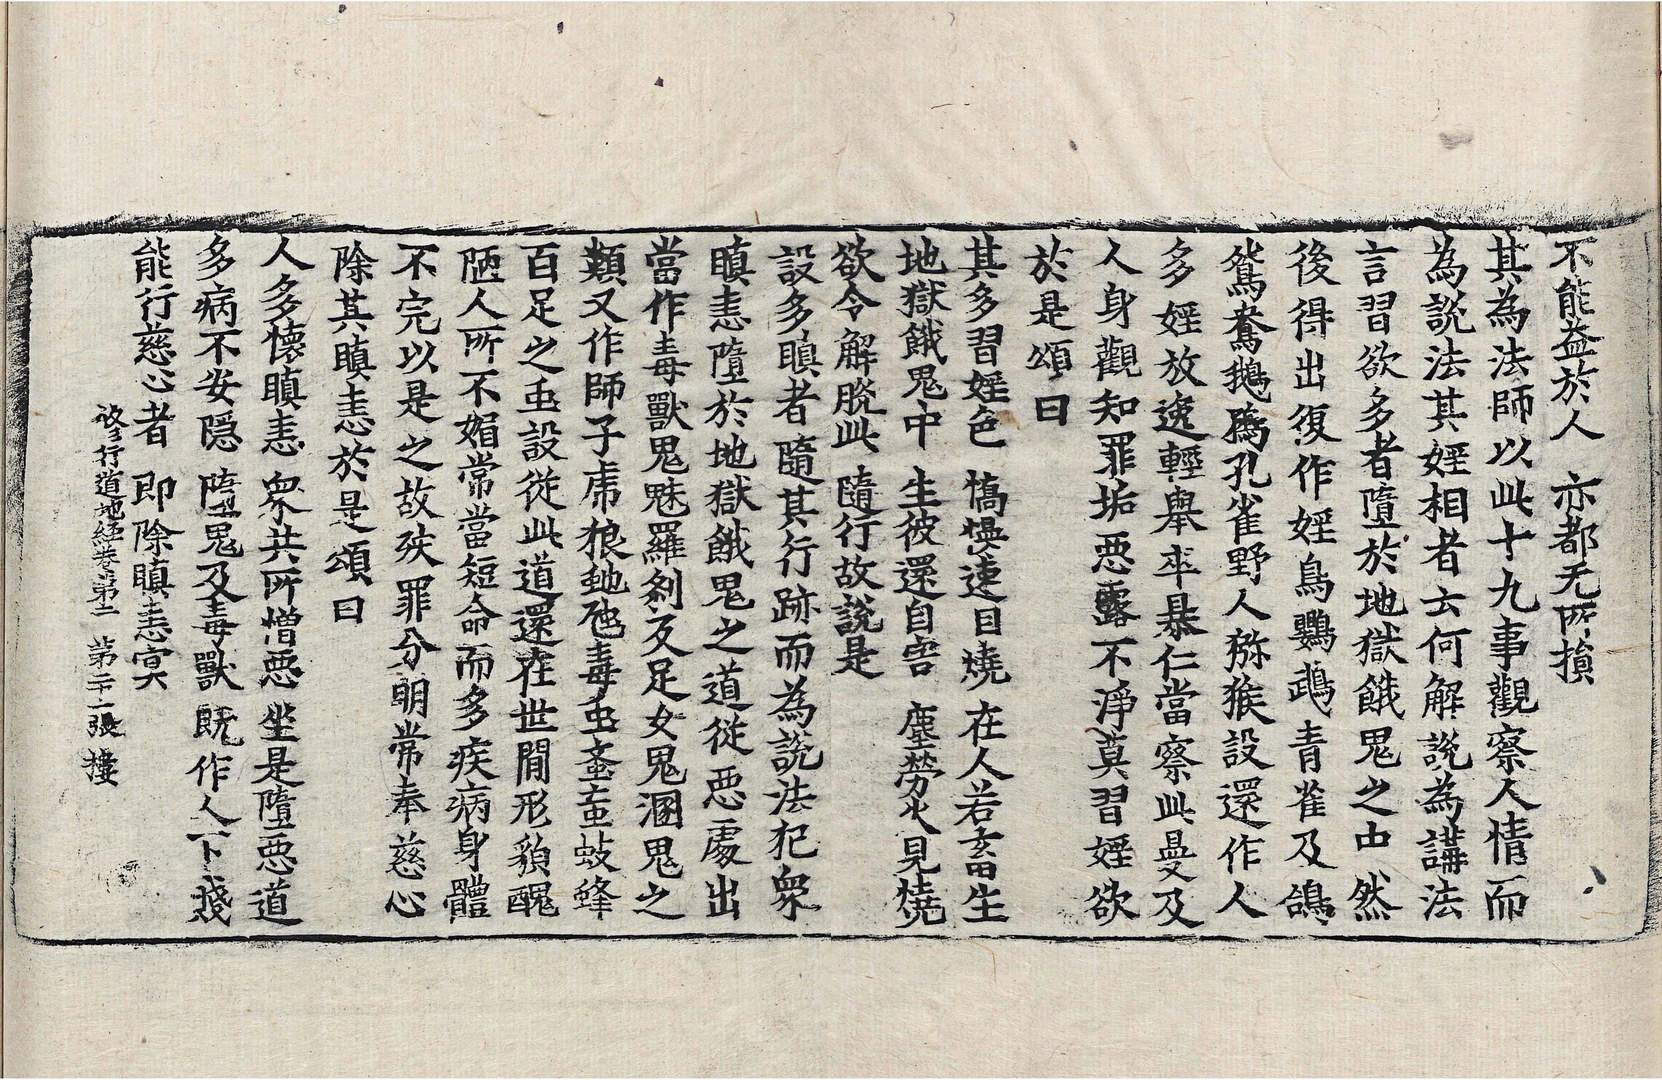 不能益於人　亦都无所損
其為法師以此十九事觀察人情而
為說法其婬相者云何解說為講法
言習欲多者墮於地獄餓鬼之中然
後得出復作婬鳥鸚鵡青雀及鴿
鴛鴦鵝鶩孔雀野人猕猴設還作人
多婬放逸輕舉卒暴仁當察此曼及
人身觀知罪垢惡露不淨莫習婬欲
於是頌曰
其多習婬色　憍慢速目燒　在人若畜生
地獄餓鬼中　生彼還自害　塵勞火見燒
欲令解脫此　隨行故說是
設多瞋者隨其行跡而為說法犯衆
瞋恚墮於地獄餓鬼之道從惡處出
當作毒獸鬼魅羅剎反足女鬼溷鬼之
類又作師子虎狼虵虺毒虫蚉䖟蚑蜂
百足之虫設從此道還在世間形貌醜
陋人所不媚常當短命而多疾病身體
不完以是之故殃罪分明常奉慈心
除其瞋恚於是頌曰
人多懷瞋恚　衆共所憎惡　坐是墮惡道
多病不安隱　墮鬼及毒獸　旣作人下賤
能行慈心者　即除瞋恚冥
修行道地経卷第二　第二十一張　樓